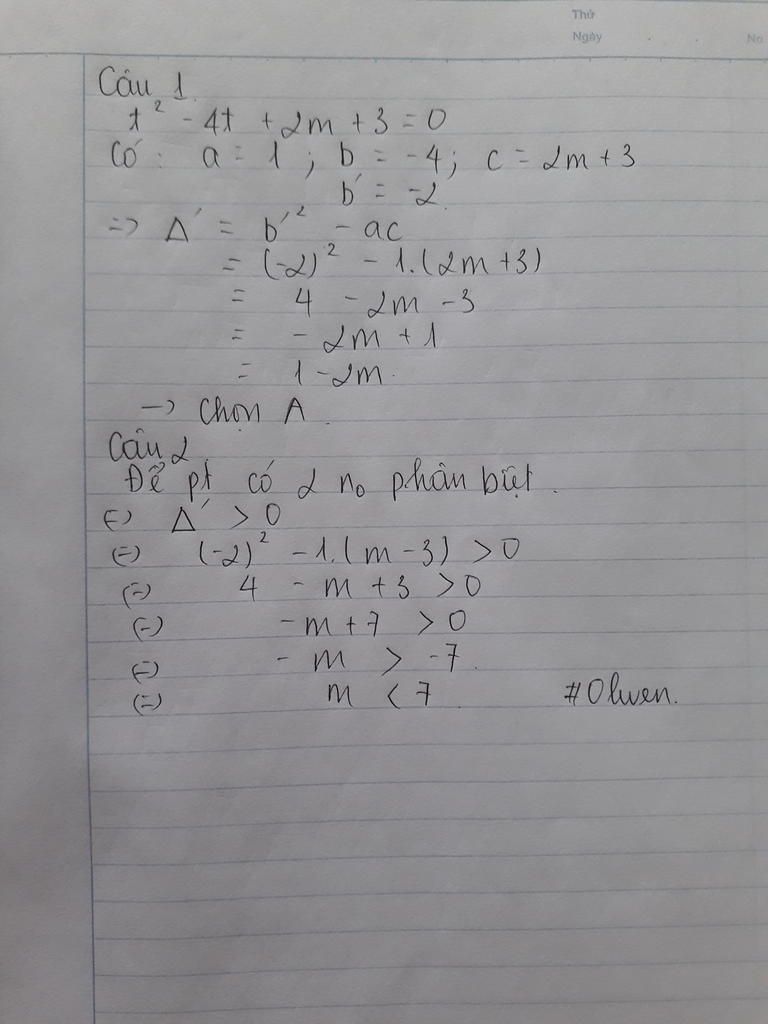 Thứ
Ngày . . No
Câu 1.
t² - 4t + 2m + 3 = 0
Có: a = 1 ; b = -4; c = 2m + 3
b' = -2
=> Δ' = b'² - ac
= (-2)² - 1.(2m + 3)
= 4 - 2m - 3
= - 2m + 1
= 1 - 2m.
-> Chọn A.
Câu 2.
Để pt có 2 no phân biệt.
(=) Δ' > 0
(=) (-2)² - 1.(m - 3) > 0
(=) 4 - m + 3 > 0
(=) - m + 7 > 0
(=) - m > -7.
(=) m < 7. #Olwen.